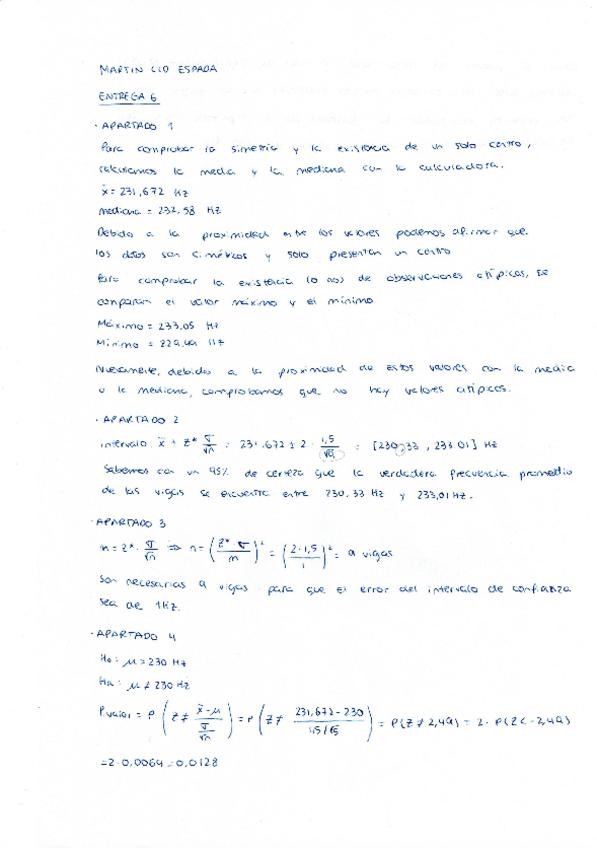 MARTIN CID ESPADA
ENTREGA 6
· APARTADO 1
Para comprobar la simetría y la existencia de un solo centro,
calculamos la media y la mediana con la calculadora.
x̄ = 231,672 Hz
mediana = 232,58 Hz
Debido a la proximidad entre los valores podemos afirmar que
los datos son simétricos y solo presentan un centro
Para comprobar la existencia (o no) de observaciones atípicas, se
comparan el valor máximo y el mínimo
Máximo = 233,05 Hz
Mínimo = 229,49 Hz
Nuevamente, debido a la proximidad de estos valores con la media
o la mediana, comprobamos que no hay valores atípicos.
· APARTADO 2
intervalo: x̄ ± z* σ/√n = 231,672 ± 2 · 1,5/√5 = [230,33 , 233.01] Hz
Sabemos con un 95% de certeza que la verdadera frecuencia promedio
de las vigas se encuentra entre 230,33 Hz y 233,01 Hz.
· APARTADO 3
m = z* · σ/√n ⇒ n = (z* · σ / m)² = (2 · 1,5 / 1)² = 9 vigas
Son necesarias 9 vigas para que el error del intervalo de confianza
sea de 1Hz.
· APARTADO 4
H₀: μ = 230 Hz
Ha: μ ≠ 230 Hz
Pvalor = P (Z ≠ (x̄ - μ) / (σ/√n)) = P (Z ≠ (231,672 - 230) / (1,5/√5)) = P(Z ≠ 2,49) = 2 · P(Z < -2,49)
= 2 · 0,0064 = 0,0128